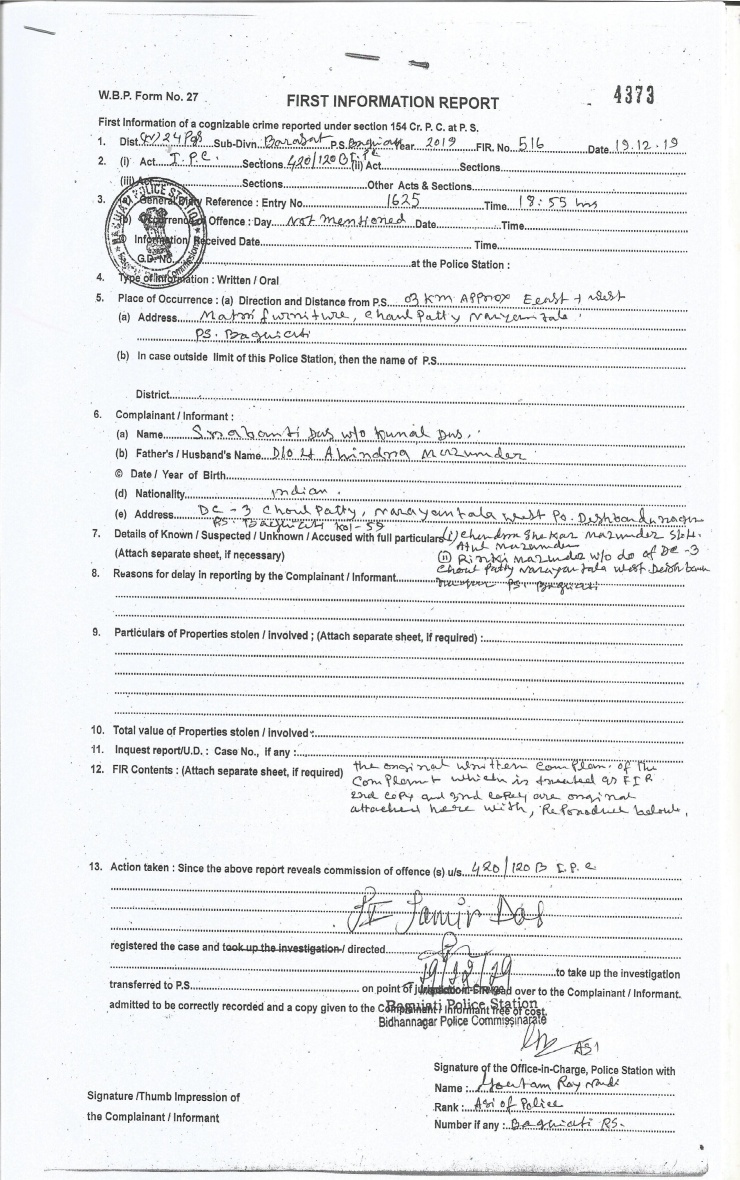 W.B.P. Form No. 27
FIRST INFORMATION REPORT
4373
First Information of a cognizable crime reported under section 154 Cr. P. C. at P. S.
1. Dist. (N) 24 Pgs Sub-Divn. Barasat P.S. Baguiati Year 2019 FIR. No. 516 Date 19.12.19
2. (i) Act I.P.C. Sections 420/120B IPC (ii) Act Sections
(iii) Act Sections Other Acts & Sections
3. (a) General Diary Reference : Entry No. 1625 Time 18:55 hrs
(b) Occurrence of Offence : Day Not mentioned Date Time
Information Received Date Time
G.D. No. at the Police Station :
4. Type of Information : Written / Oral
5. Place of Occurrence : (a) Direction and Distance from P.S. 03 KM Approx Eeast + west
(a) Address Matri furniture, Choul Patty Narayantala
PS. Baguiati
(b) In case outside limit of this Police Station, then the name of P.S.
District
6. Complainant / Informant :
(a) Name Srabanti Das w/o Kunal Das.
(b) Father's / Husband's Name D/o Lt Ahindra Mazumder
© Date / Year of Birth
(d) Nationality indian.
(e) Address DC-3 Choul Patty, Narayantala west Po. Deshbandunagar
PS. Baguiati Kol-59
7. Details of Known / Suspected / Unknown / Accused with full particulars (i) Chandra Shekar Mazumder S/o Lt.
Atul Mazumder
(Attach separate sheet, if necessary) (ii) Rinki Mazumder w/o do of DC-3
Choul Patty Narayantala west Deshban
8. Reasons for delay in reporting by the Complainant / Informant
PS. Baguiati
9. Particulars of Properties stolen / involved ; (Attach separate sheet, if required) :
10. Total value of Properties stolen / involved :
11. Inquest report/U.D. : Case No., if any :
12. FIR Contents : (Attach separate sheet, if required) the original written Complain. of the
Complaint which is treated as FIR
and copy are original
attached here with, Reproduce below.
13. Action taken : Since the above report reveals commission of offence (s) u/s. 420/120B I.P.C
Samir Das
registered the case and took up the investigation / directed
19/12/19 to take up the investigation
transferred to P.S. on point of jurisdiction. FIR read over to the Complainant / Informant.
admitted to be correctly recorded and a copy given to the Complainant / Informant free of cost.
Baguiati Police Station
Bidhannagar Police Commissinarate
ASI
Signature of the Office-in-Charge, Police Station with
Name : Goutam Roy
Signature /Thumb Impression of
Rank : Asi of Police
the Complainant / Informant
Number if any : Baguiati PS.